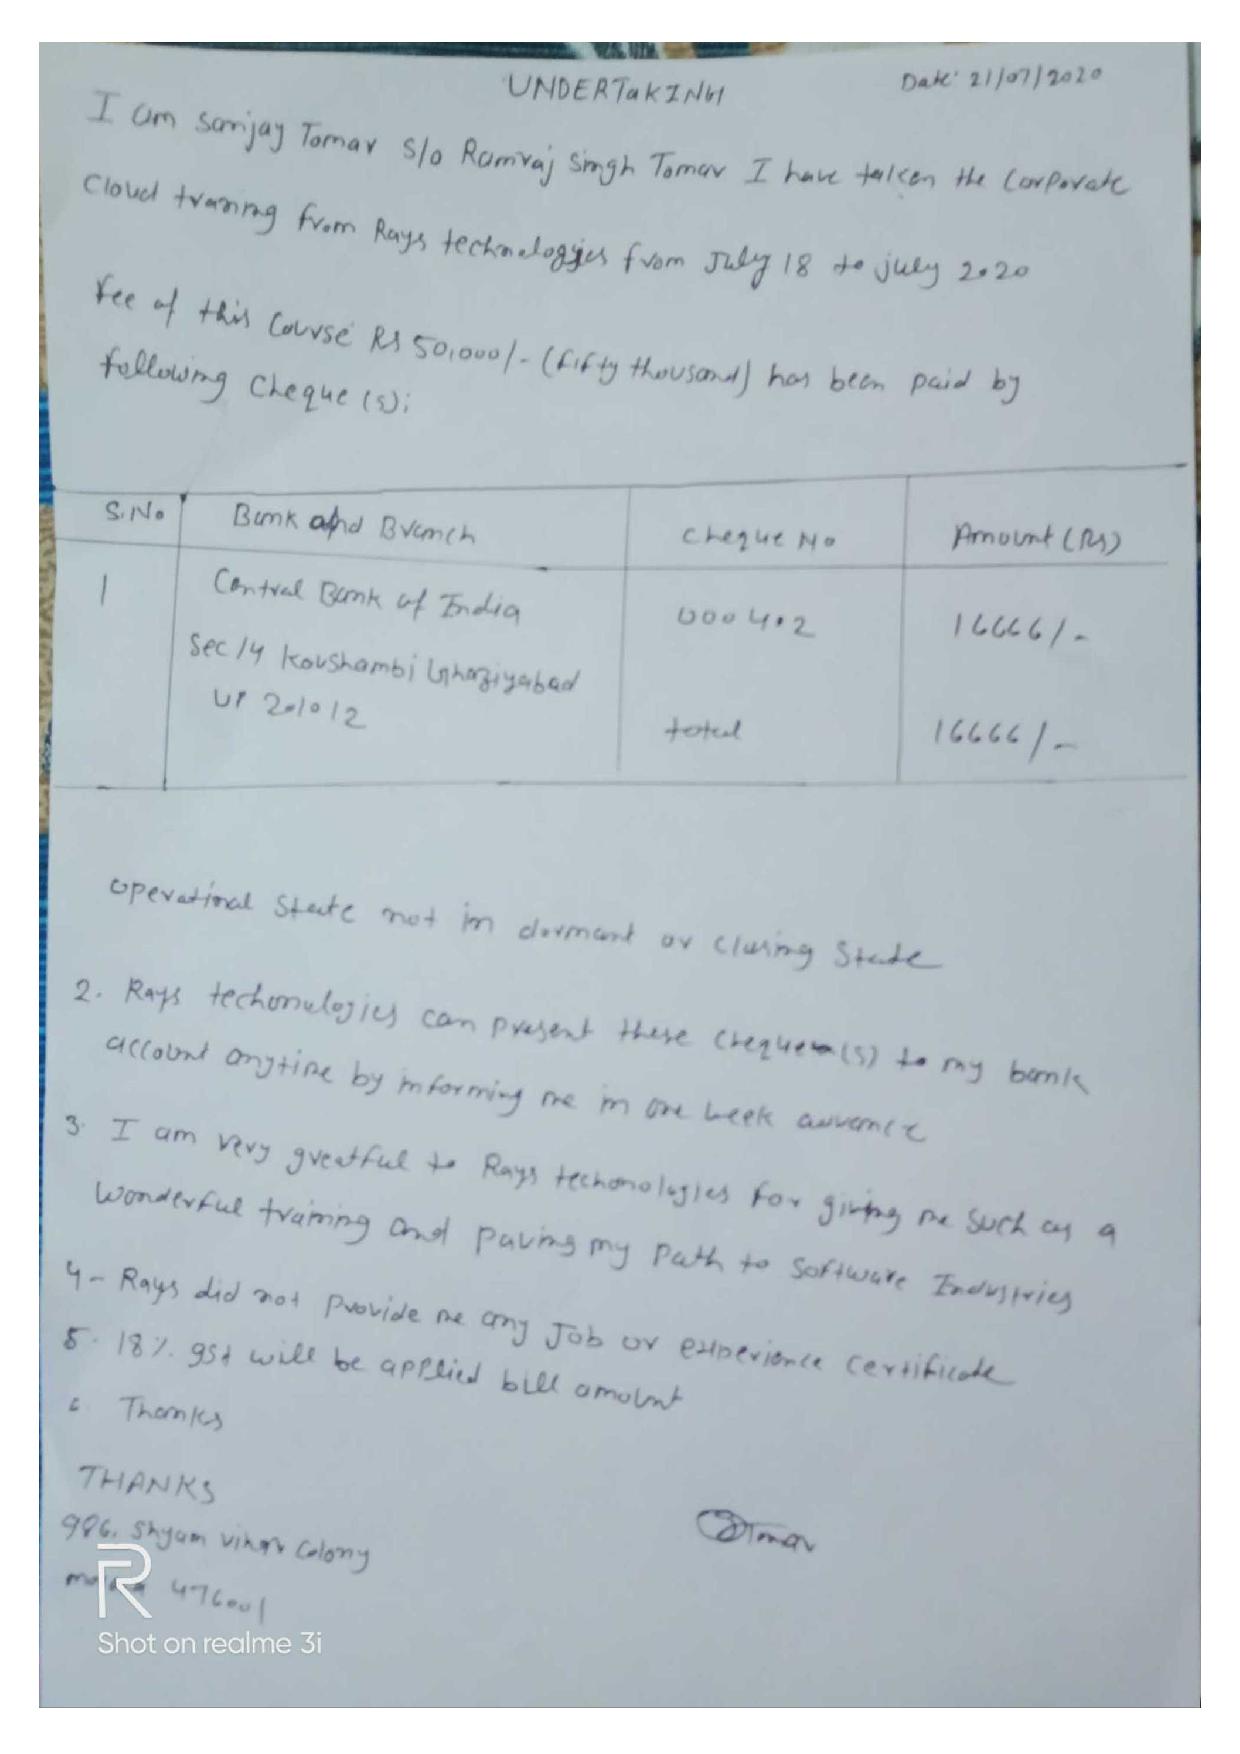 UNDERTaKING
Date: 21/07/2020
I am Sanjay Tomar S/o Ramraj Singh Tomar I have taken the Corporate
Cloud traning from Rays technologyies from July 18 to july 2020
Fee of this Course Rs 50,000/- (fifty thousand) has been paid by
following Cheque (s):
S.No Bank and Branch Cheque No Amount (Rs)
1 Central Bank of India 000402 16666/-
Sec 14 Koushambi Ghaziyabad
UP 201012 total 16666/-
operational State not in dormant or closing State
2. Rays techonologies can present these cheque(s) to my bank
account anytime by informing me in one week
3. I am very greatful to Rays techonologies for giving me such as a
Wonderful training and paving my path to Software Industries
4- Rays did not provide me any Job or experience certificate
5. 18% gst will be applied bill amount
6 Thanks
THANKS
986, Shyam vihar Colony
476001
Tomar
R
Shot on realme 3i